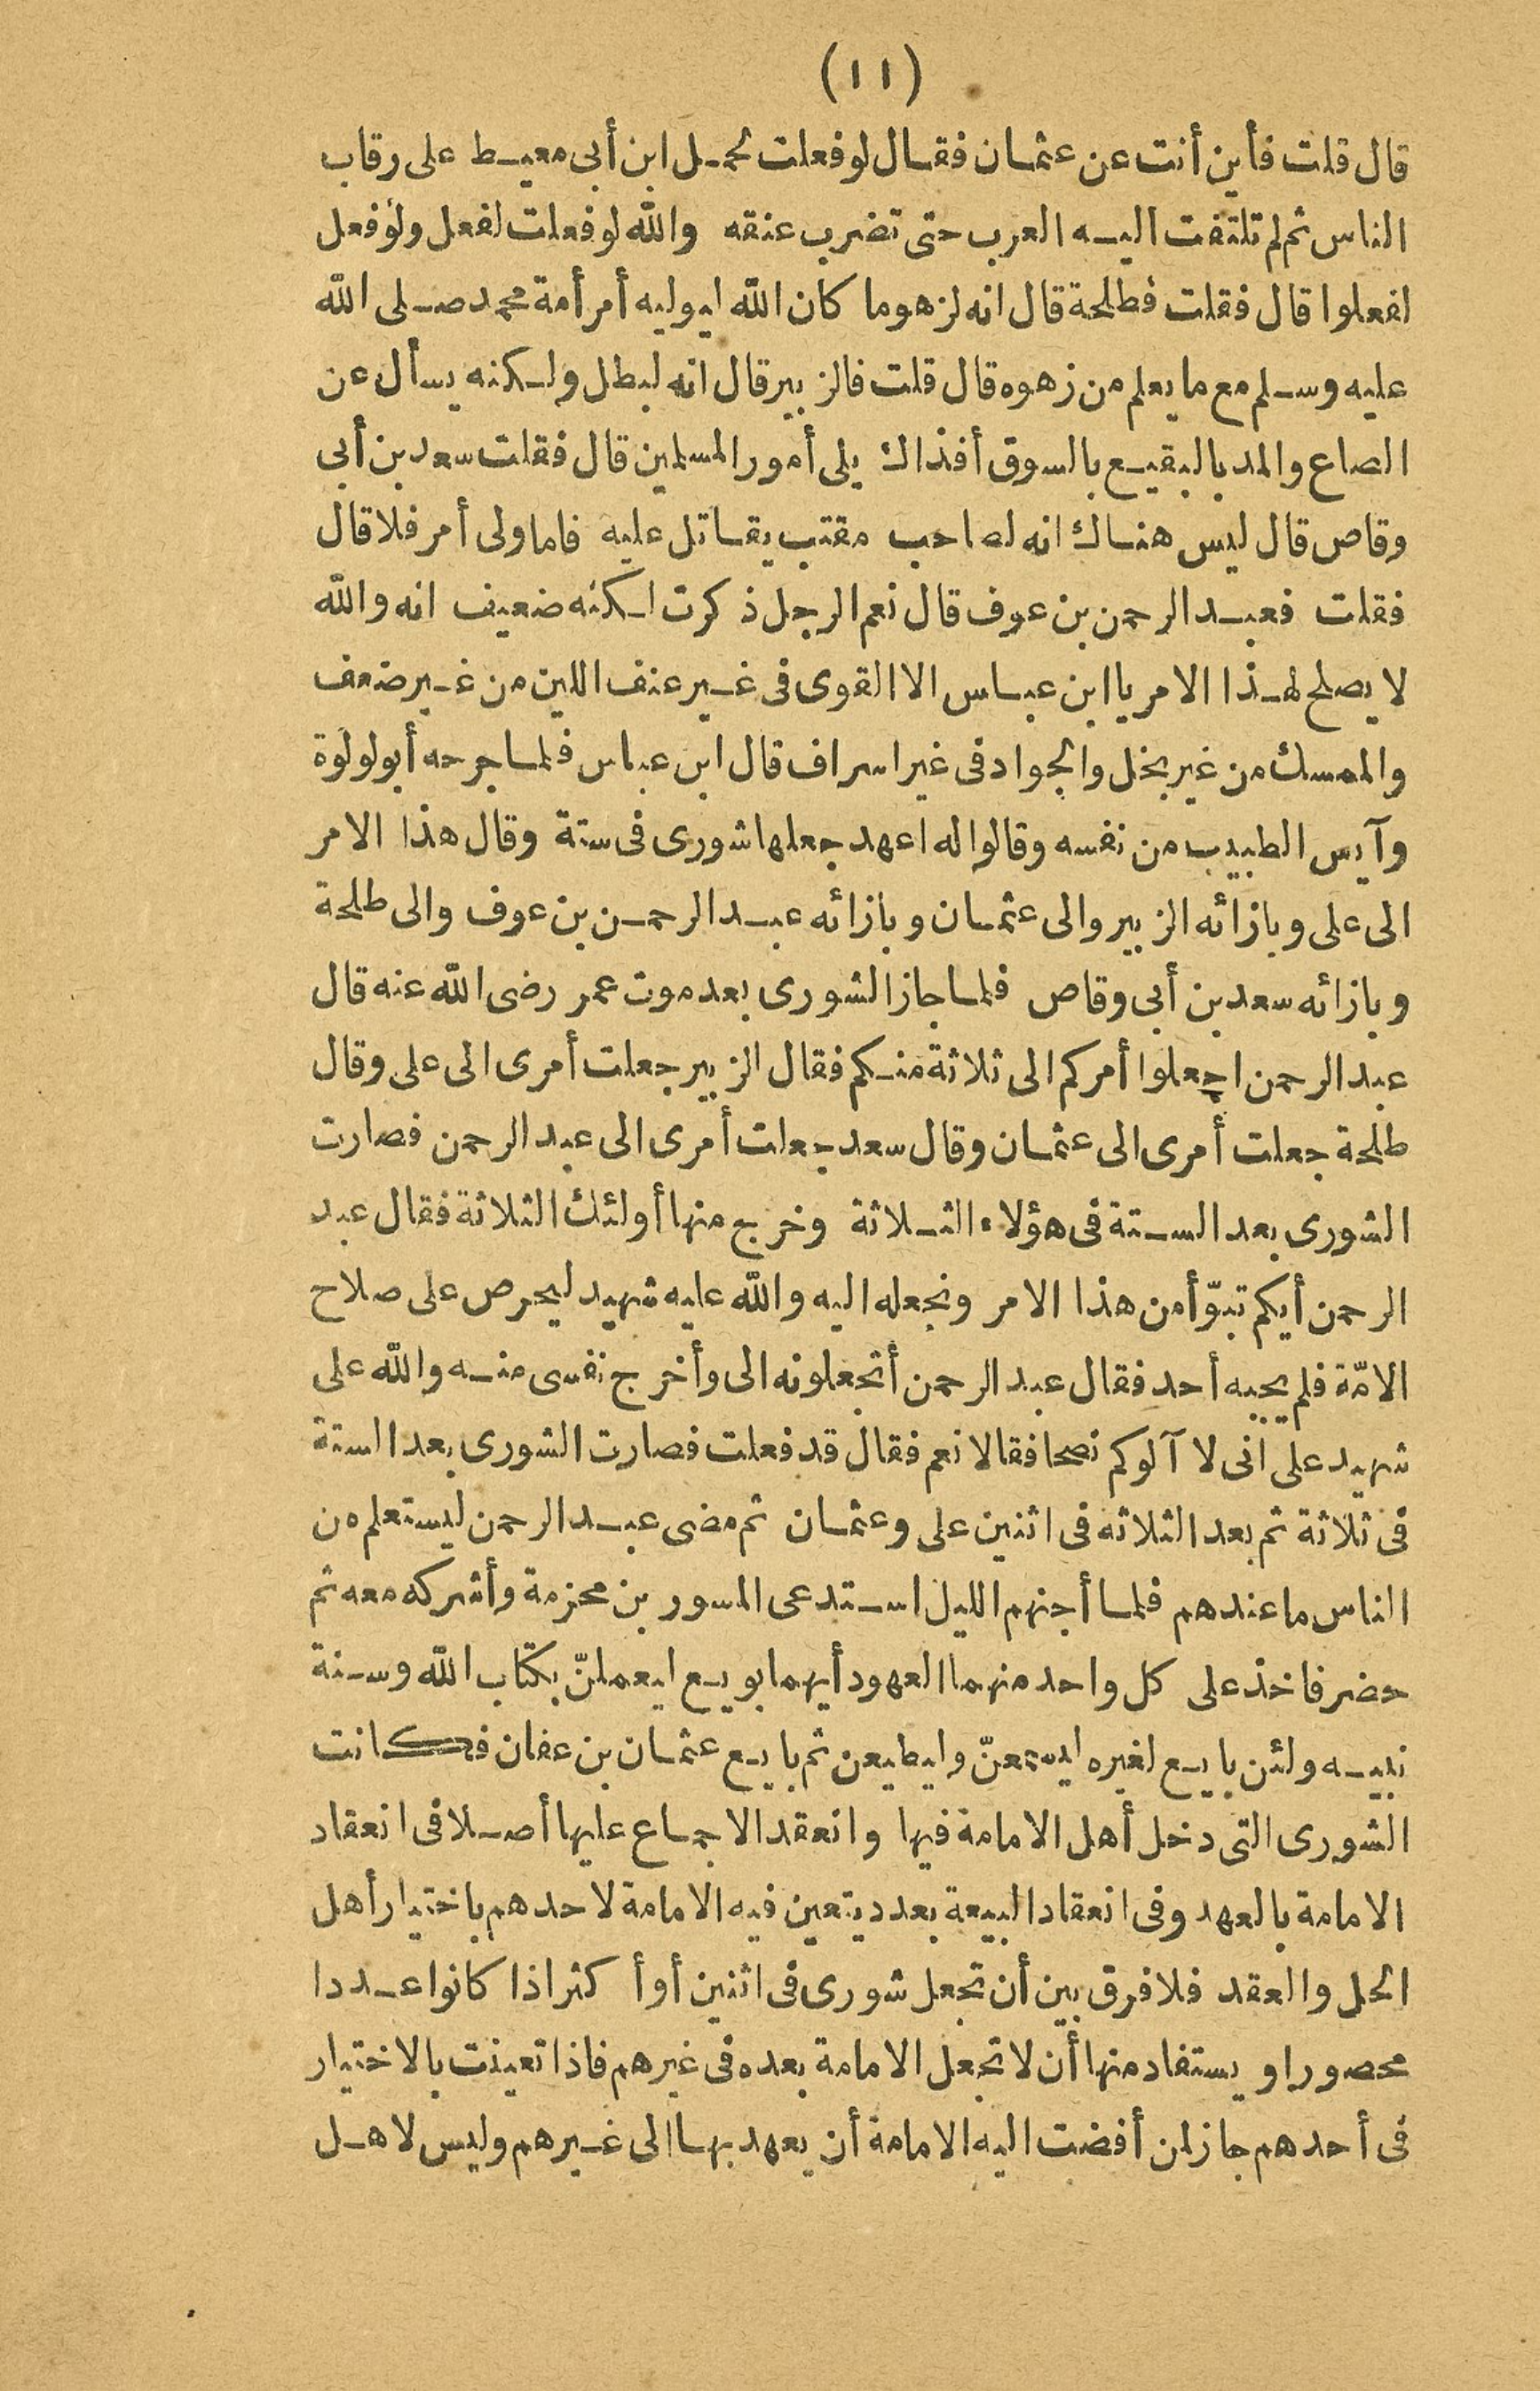 (١١)
قال قلت فأين أنت عن عثمان فقال لو فعلت لحمل ابن أبى معيط على رقاب
الناس ثم لم تلتفت اليه العرب حتى تضرب عنقه والله لو فعلت لفعل ولو فعل
لفعلوا قال فقلت فطلحة قال انه لزهو ما كان الله ليوليه أمر أمة محمد صلى الله
عليه وسلم مع ما يعلم من زهوه قال قلت فالزبير قال انه لبطل ولكنه يسأل عن
الصاع والمد بالبقيع بالسوق أفذاك يلى أمور المسلمين قال فقلت سعد بن أبى
وقاص قال ليس هناك انه لصاحب مقتب يقاتل عليه فاما ولى أمر فلا قال
فقلت فعبد الرحمن بن عوف قال نعم الرجل ذكرت لكنه ضعيف انه والله
لا يصلح لهذا الامر يا ابن عباس الا القوى فى غير عنف اللين من غير ضعف
والممسك من غير بخل والجواد فى غير اسراف قال ابن عباس فلما جرحه أبو لولوة
وآيس الطبيب من نفسه وقالوا له اعهد جعلها شورى فى ستة وقال هذا الامر
الى على وبازائه الزبير والى عثمان وبازائه عبد الرحمن بن عوف والى طلحة
وبازائه سعد بن أبى وقاص فلما جاز الشورى بعد موت عمر رضى الله عنه قال
عبد الرحمن اجعلوا أمركم الى ثلاثة منكم فقال الزبير جعلت أمرى الى على وقال
طلحة جعلت أمرى الى عثمان وقال سعد جعلت أمرى الى عبد الرحمن فصارت
الشورى بعد الستة فى هؤلاء الثلاثة وخرج منها أولئك الثلاثة فقال عبد
الرحمن أيكم تبوّأ من هذا الامر ونجعله اليه والله عليه شهيد ليحرص على صلاح
الامّة فلم يجبه أحد فقال عبد الرحمن أتجعلونه الى وأخرج نفسى منه والله على
شهيد على انى لا آلوكم نصحا فقالا نعم فقال قد فعلت فصارت الشورى بعد الستة
فى ثلاثة ثم بعد الثلاثه فى اثنين على وعثمان ثم مضى عبد الرحمن ليستعلم من
الناس ما عندهم فلما أجنهم الليل استدعى المسور بن مخزمة وأشركه معه ثم
حضر فاخذ على كل واحد منهما العهود أيهما بويع ليعملنّ بكتاب الله وسنة
نبيه ولئن بايع لغيره ليسمعنّ وليطيعن ثم بايع عثمان بن عفان فكانت
الشورى التى دخل أهل الامامة فيها وانعقد الاجماع عليها أصلا فى انعقاد
الامامة بالعهد وفى انعقاد البيعة بعدد يتعين فيه الامامة لاحدهم باختيار أهل
الحل والعقد فلا فرق بين أن تجعل شورى فى اثنين أو أكثر اذا كانوا عددا
محصورا ويستفاد منها أن لا تجعل الامامة بعده فى غيرهم فاذا تعينت بالاختيار
فى أحدهم جاز لمن أفضت اليه الامامة أن يعهد بها الى غيرهم وليس لاهل